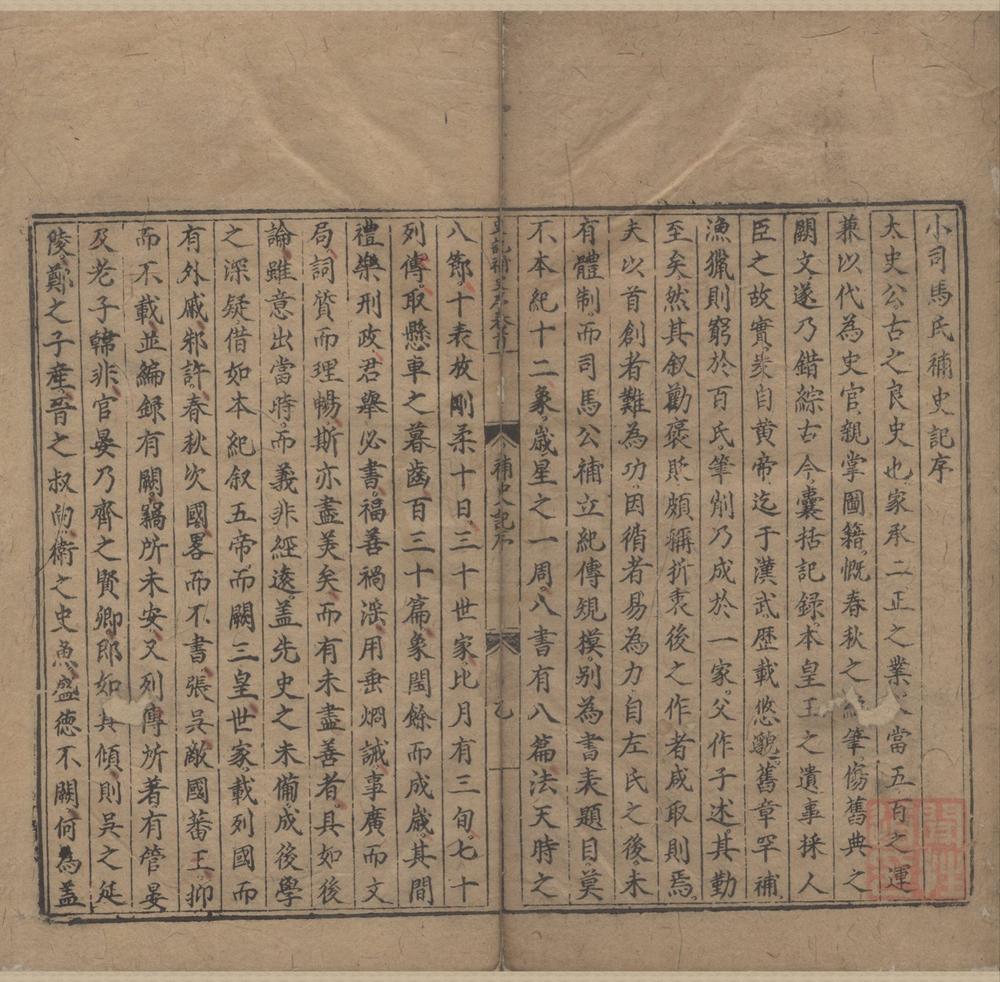 小司馬氏補史記序
太史公古之良史也家承二正之業人當五百之運
兼以代為史官親掌圖籍慨春秋之絶筆傷舊典之
闕文遂乃錯綜古今囊括記録本皇王之遺事採人
臣之故實爰自黄帝迄于漢武歴載悠邈舊章罕補
漁獵則窮於百氏筆削乃成於一家父作子述其勤
至矣然其叙勸褒貶頗稱折衷後之作者咸取則焉
夫以首創者難為功因循者易為力自左氏之後未
有體制而司馬公補立紀傳規摸别為書表題目莫
不本紀十二象歳星之一周八書有八篇法天時之
史記補史序卷首
補史記序
乙
八節十表放剛柔十日三十世家比月有三旬七十
列傳取懸車之暮齒百三十篇象閏餘而成歳其間
禮樂刑政君舉必書福善禍淫用垂烱誡事廣而文
局詞質而理暢斯亦盡美矣而有未盡善者具如後
論雖意出當時而義非經遠盖先史之未備成後學
之深疑借如本紀叙五帝而闕三皇世家載列國而
有外戚邾許春秋次國畧而不書張吳敵國蕃王抑
而不載並編録有闕竊所未安又列傳所著有管晏
及老子韓非官晏乃齊之賢卿郎如其傾則吳之延
陵鄭之子産晉之叔向衛之史魚盛德不闕何為盖